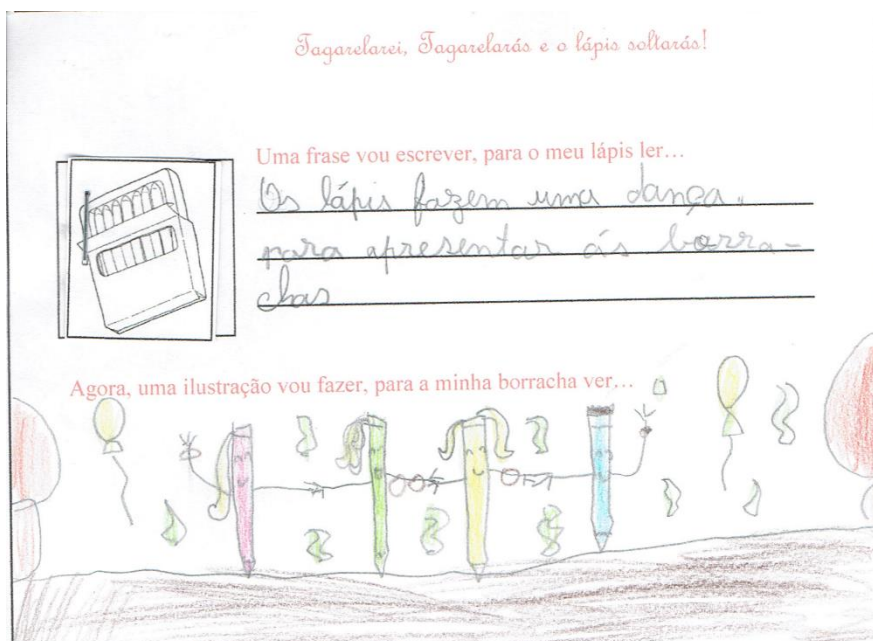 Tagarelarei, Tagarelarás e o lápis soltarás!
Uma frase vou escrever, para o meu lápis ler...
Os lápis fazem uma dança.
para apresentar ás borra-
chas
Agora, uma ilustração vou fazer, para a minha borracha ver...